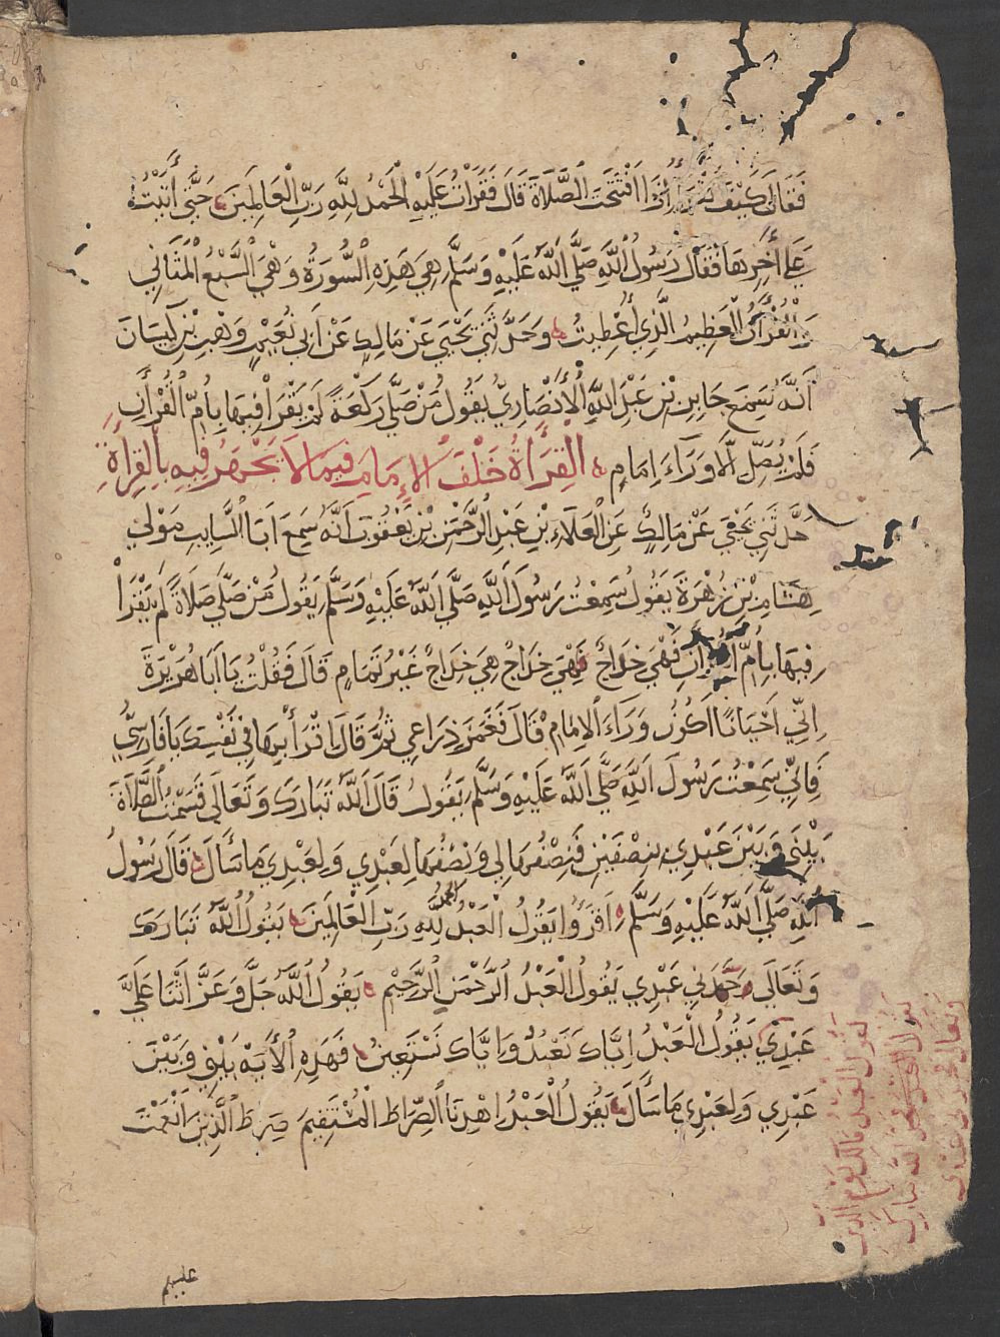 فَقَالَ كَيْفَ تَقْرَأُ إِذَا افْتَتَحْتَ الصَّلَاةَ قَالَ فَقَرَأْتُ عَلَيْهِ الْحَمْدُ لِلَّهِ رَبِّ الْعَالَمِينَ حَتَّى أَتَيْتُ
عَلَى أَخِرِهَا فَقَالَ رَسُولُ اللَّهِ صَلَّى اللَّهُ عَلَيْهِ وَسَلَّمَ هِيَ هَذِهِ السُّورَةُ وَهْيَ السَّبْعُ الْمَثَانِي
وَالْقُرْأَنُ الْعَظِيمُ الَّذِي أُعْطِيتُ وَحَدَّثَنِي يَحْيَى عَنْ مَالِكٍ عَنْ أَبِي نُعَيْمٍ وَهْبِ بْنِ كَيْسَانَ
أَنَّهُ سَمِعَ جَابِرَ بْنَ عَبْدِ اللَّهِ الْأَنْصَارِيَّ يَقُولُ مَنْ صَلَّى رَكْعَةً لَمْ يَقْرَأْ فِيهَا بِأُمِّ الْقُرْأَنِ
فَلَمْ يُصَلِّ إِلَّا وَرَاءَ إِمَامٍ الْقِرَأَةُ خَلْفَ الْإِمَامِ فِيمَا لَا يَجْهَرُ فِيهِ بِالْقِرَأَةِ
حَدَّثَنِي يَحْيَى عَنْ مَالِكٍ عَنِ الْعَلَاءِ بْنِ عَبْدِ الرَّحْمَنِ بْنِ يَعْقُوبَ أَنَّهُ سَمِعَ أَبَا السَّايِبِ مَوْلَى
هِشَامِ بْنِ زُهْرَةَ يَقُولُ سَمِعْتُ رَسُولَ اللَّهِ صَلَّى اللَّهُ عَلَيْهِ وَسَلَّمَ يَقُولُ مَنْ صَلَّى صَلَاةً لَمْ يَقْرَأْ
فِيهَا بِأُمِّ الْقُرْأَنِ فَهْيَ خِدَاجٌ فَهْيَ خِدَاجٌ هِيَ خِدَاجٌ غَيْرُ تَمَامٍ قَالَ فَقُلْتُ يَا أَبَا هُرَيْرَةَ
إِنِّي أَحْيَانًا أَكُونُ وَرَاءَ الْإِمَامِ قَالَ فَغَمَزَ ذِرَاعِي ثُمَّ قَالَ اقْرَأْ بِهَا فِي نَفْسِكَ يَا فَارِسِيُّ
فَإِنِّي سَمِعْتُ رَسُولَ اللَّهِ صَلَّى اللَّهُ عَلَيْهِ وَسَلَّمَ يَقُولُ قَالَ اللَّهُ تَبَارَكَ وَتَعَالَى قَسَمْتُ الصَّلَاةَ
بَيْنِي وَبَيْنَ عَبْدِي بِنِصْفَيْنِ فَنِصْفُهَا لِي وَنِصْفُهَا لِعَبْدِي وَلِعَبْدِي مَا سَأَلَ قَالَ رَسُولُ
اللَّهِ صَلَّى اللَّهُ عَلَيْهِ وَسَلَّمَ اقْرَؤُا يَقُولُ الْعَبْدُ الحمد لِلَّهِ رَبِّ الْعَالَمِينَ يَقُولُ اللَّهُ تَبَارَكَ
وَتَعَالَى حَمِدَنِي عَبْدِي يَقُولُ الْعَبْدُ الرَّحْمَنِ الرَّحِيمِ يَقُولُ اللَّهُ جَلَّ وَعَزَّ أَثْنَا عَلَيَّ
عَبْدِي يَقُولُ الْعَبْدُ إِيَّاكَ نَعْبُدُ وَإِيَّاكَ نَسْتَعِينُ فَهَذِهِ الْأَيَةُ بَيْنِي وَبَيْنَ
عَبْدِي وَلِعَبْدِي مَا سَأَلَ يَقُولُ الْعَبْدُ اهْدِنَا الصِّرَاطَ الْمُسْتَقِيمَ صِرَاطَ الَّذِينَ أَنْعَمْتَ
عليهم
يقول العبد مالك يوم الدين
يقول الله تبارك
وتعالى مجدني عبدي